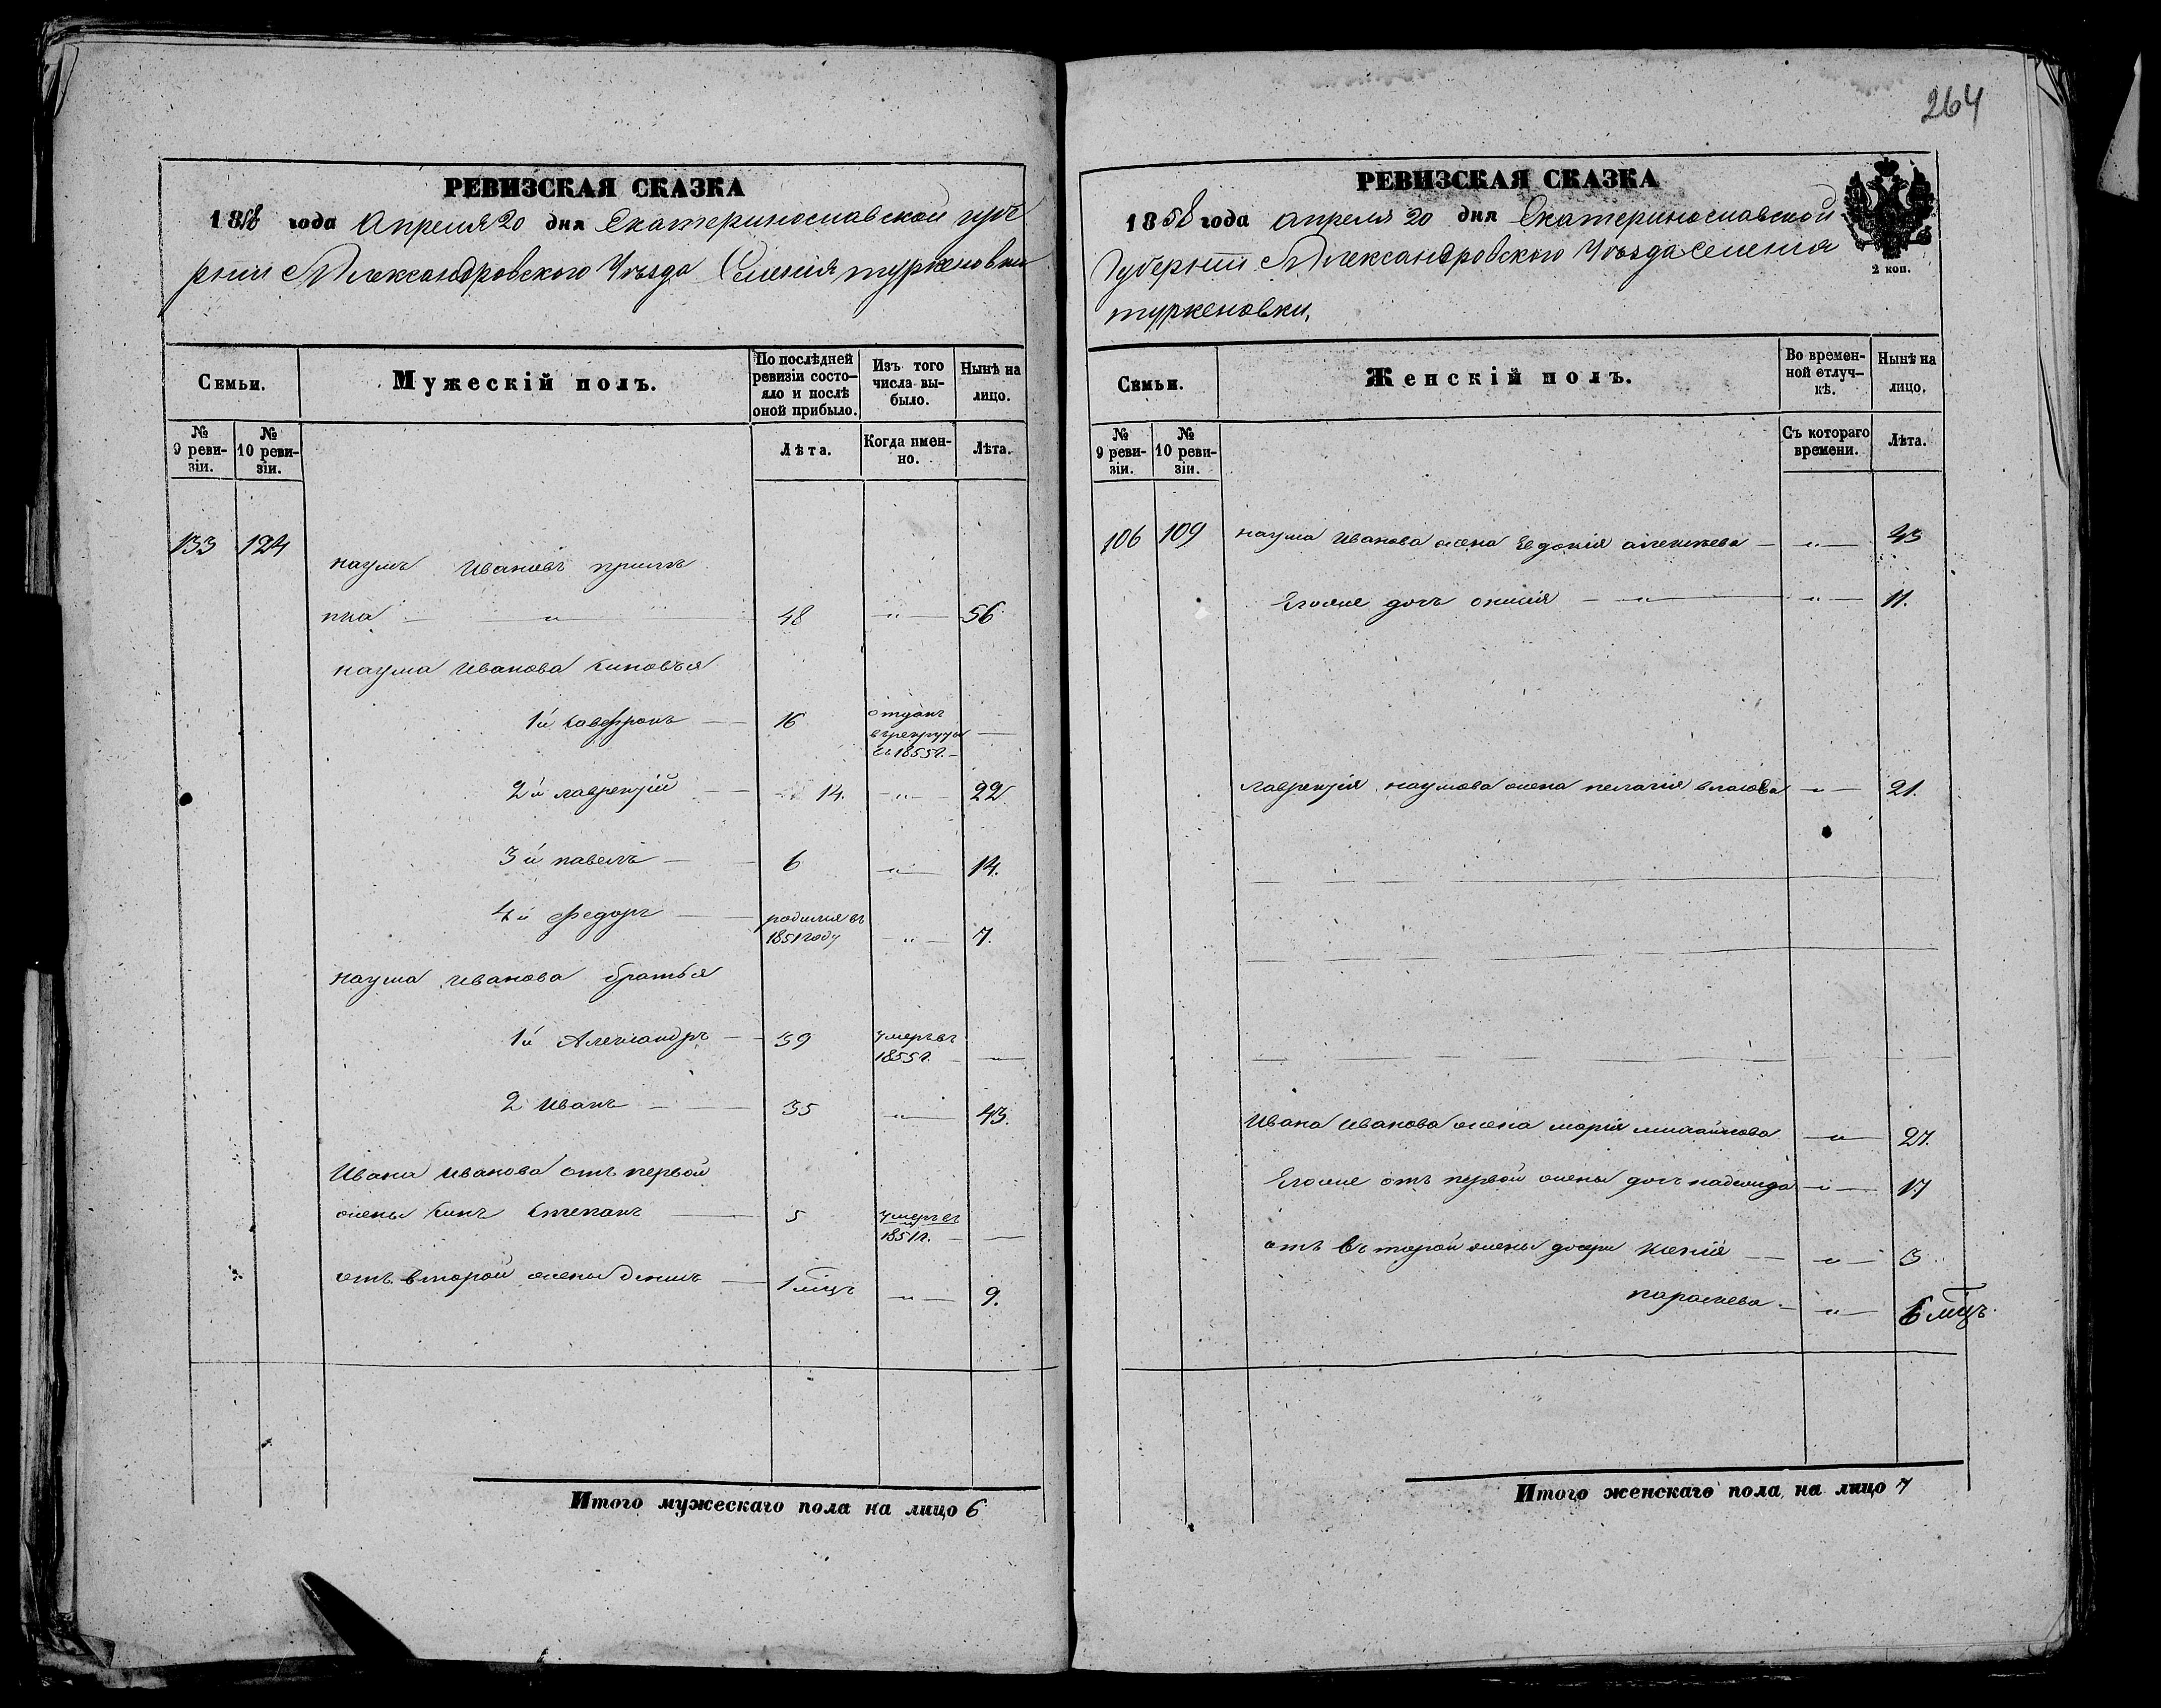 264
РЕВИЗСКАЯ СКАЗКА
1858 года Апреля 20 дня Екатеринославской губе
рнии Александровского Уѣзда Селенія туркеновки
Семьи.
Мужескій полъ.
По послѣдней ревизіи состо-
яло и послѣ оной прибыло.
Изъ того числа вы-
было.
Нынѣ на лицо.
№ 9 реви-
зіи.
№ 10 реви-
зіи.
Лѣта.
Когда имен-
но.
Лѣта.
133 124
наумъ Ивановъ
пка — " — 48 — " — 56
наума Иванова Синовья
1й — 16 отданъ в рекруты въ 1855 г. —
2й лаврентій — 14. — " — 22
3й павелъ — 6 — " — 14.
4й федоръ — родился въ 1851 году — " — 7.
наума иванова братья
1й Александръ — 39 умеръ въ 1855 г. —
2 Иванъ — 35 — " — 43.
Ивана иванова отъ первой
жены Синъ Степанъ — 5 умеръ въ 1851 г. —
отъ второй жены денисъ — 1 мцъ — " — 9.
Итого мужескаго пола на лицо 6
РЕВИЗСКАЯ СКАЗКА
1858 года апреля 20 дня Екатеринославской
Губерніи Александровского Уѣзда селенія
туркеновки.
2 коп.
Семьи.
Женскій полъ.
Во времен-
ной отлуч-
кѣ.
Нынѣ на лицо.
№ 9 реви-
зіи.
№ 10 реви-
зіи.
Съ котораго времени.
Лѣта.
106 109 наума Иванова жена Евдокія алексѣева — " — 43
Егоже дочь — " — " — 11.
лаврентія наумова жена пелагія власова — " — 21.
Ивана Иванова жена марія михайлова — " — 27.
Егоже отъ первой жены дочь надежда — " — 17
отъ второй жены дочери Ксенія — " — 3
параскева — " — 6 мцъ.
Итого женскаго пола на лицо 7